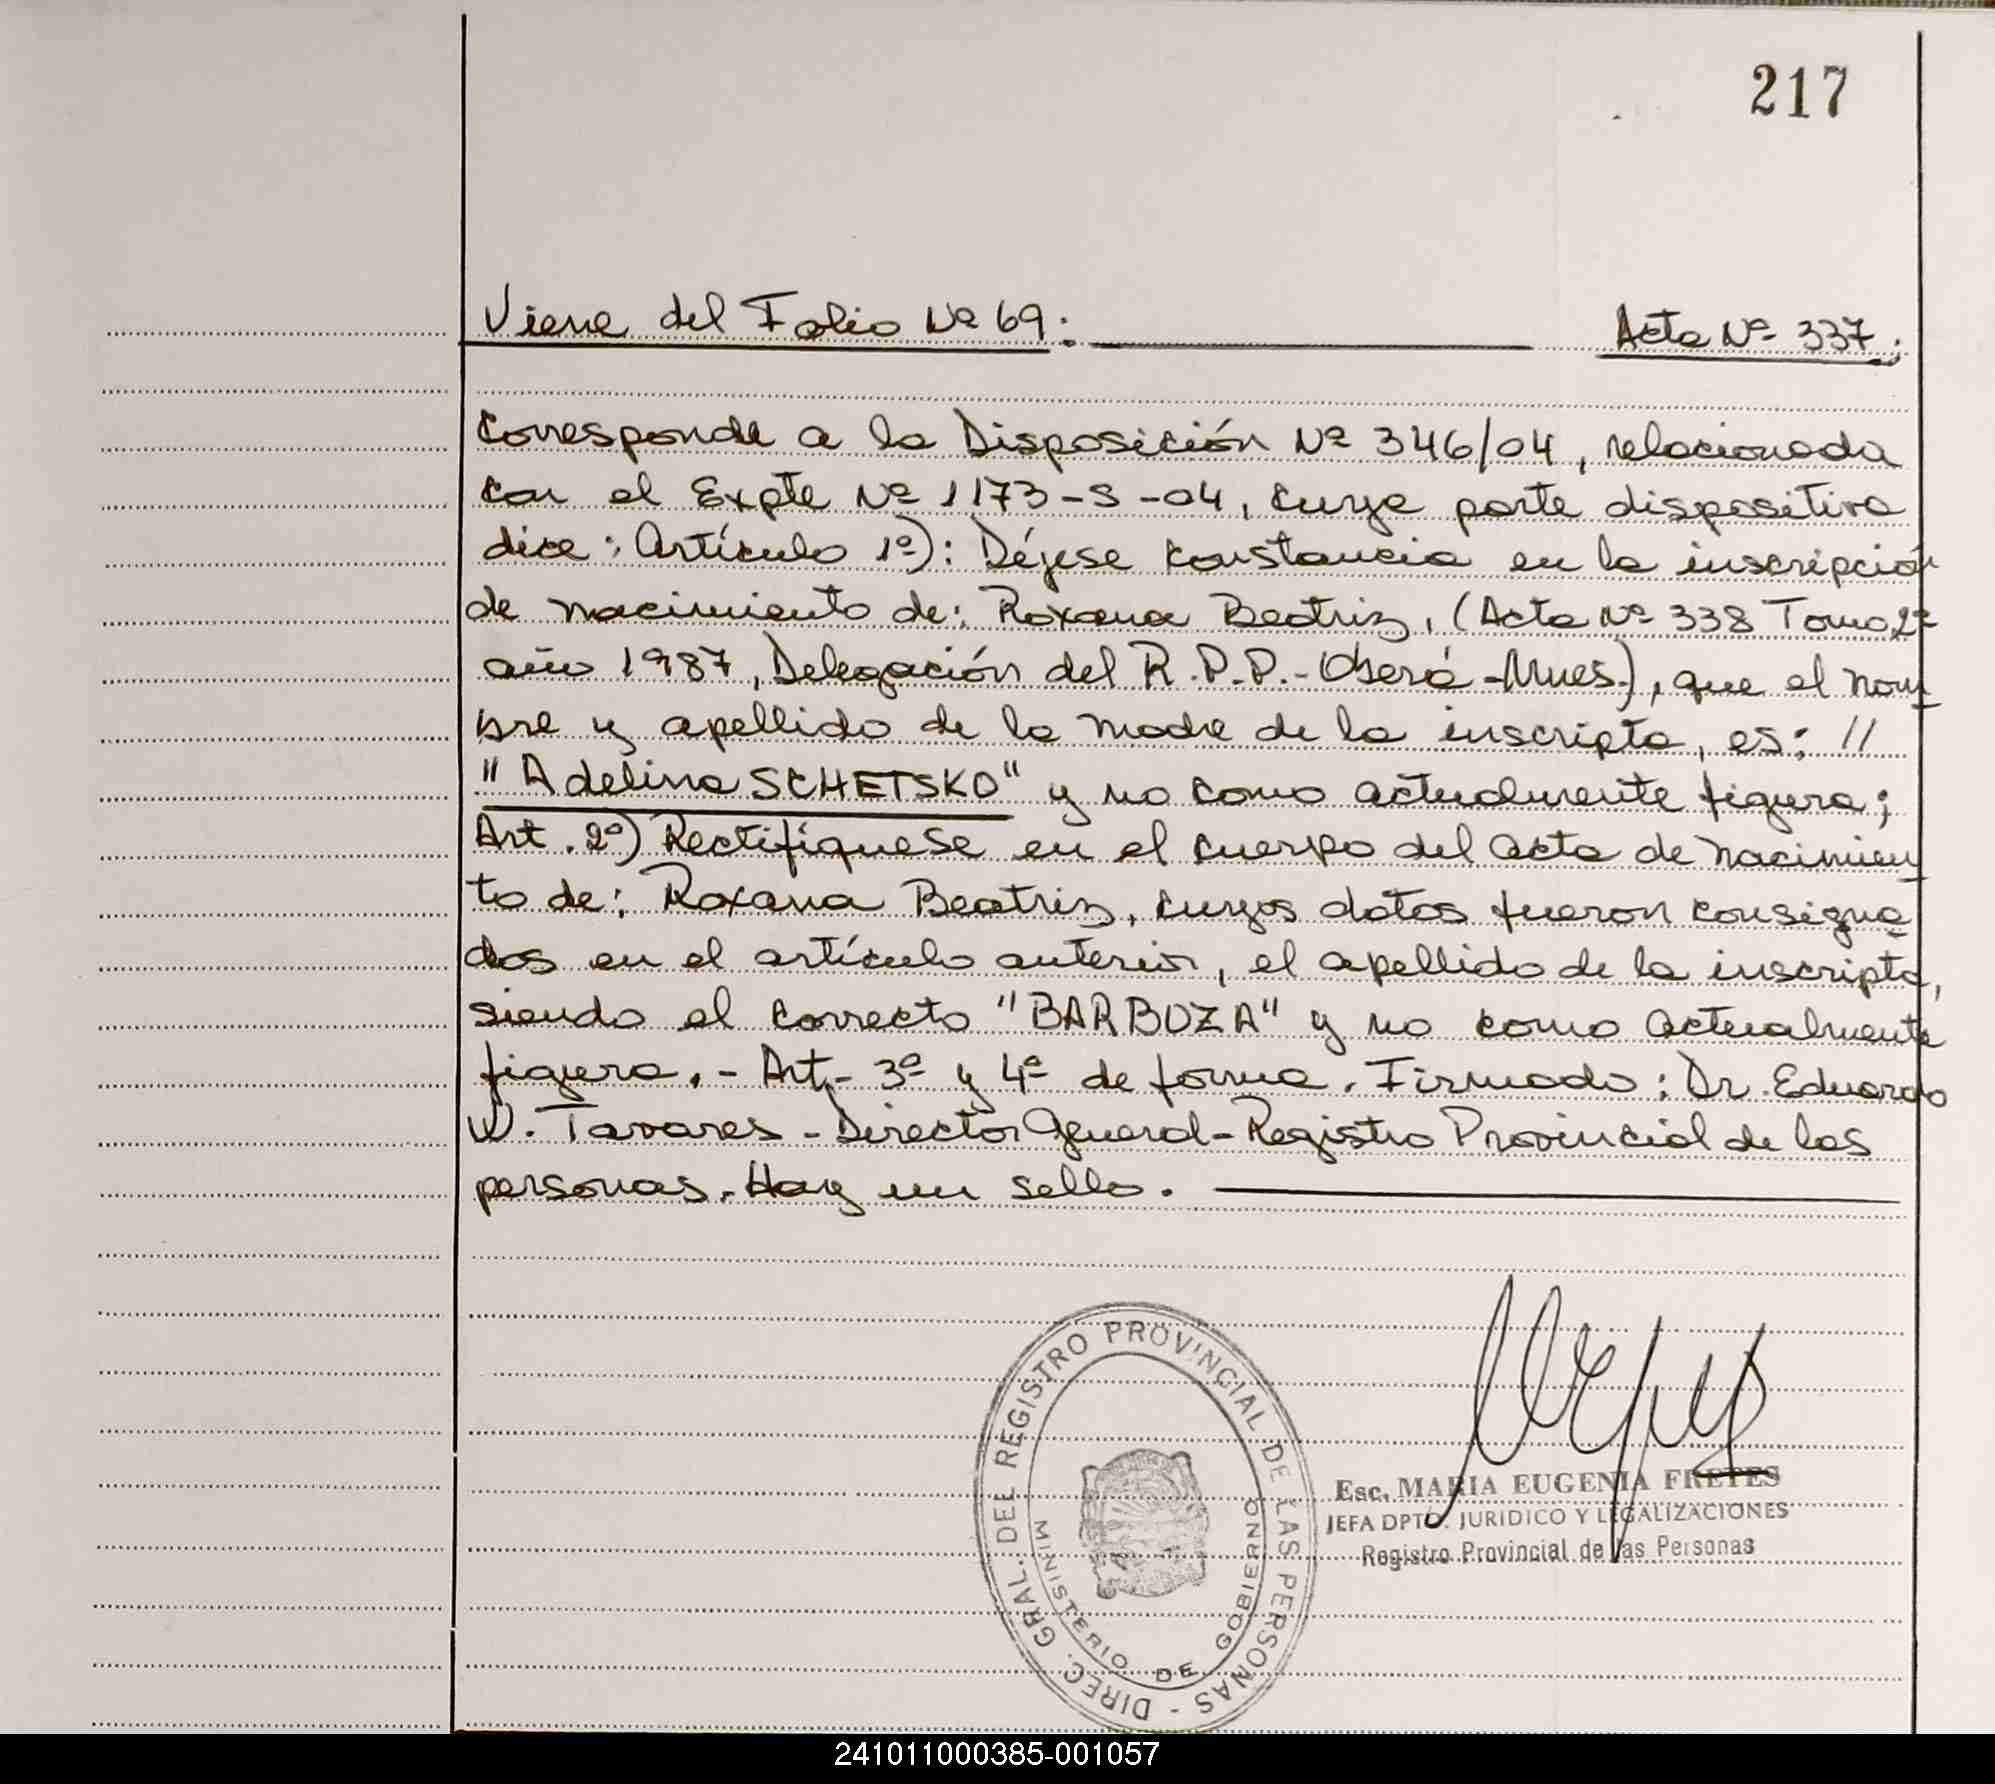 217
Viene del Folio Nº 69: Acta Nº 337;
Corresponde a la Disposición Nº 346/04, relacionada
con el Expte Nº 1173-S-04, cuya parte dispositiva
dice: Artículo 1º): Déjese constancia en la inscripción
de nacimiento de: Roxana Beatriz, (Acta Nº 338 Tomo 2º
año 1987, Delegación del R.P.P.-Oberá-Mnes.), que el nom
bre y apellido de la madre de la inscripta, es: //
"Adelina SCHETSKO" y no como actualmente figura;
Art. 2º) Rectifíquese en el cuerpo del acta de nacimien
to de: Roxana Beatriz, cuyos datos fueron consigna
dos en el artículo anterior, el apellido de la inscripta,
siendo el correcto "BARBOZA" y no como actualmente
figura.- Art.- 3º y 4º de forma. Firmado: Dr. Eduardo
W. Tavares - Director General - Registro Provincial de las
personas. Hay un sello.
DIREC. GRAL. DEL REGISTRO PROVINCIAL DE LAS PERSONAS -
MINISTERIO DE GOBIERNO
Esc. MARIA EUGENIA FRETES
JEFA DPTO. JURIDICO Y LEGALIZACIONES
Registro Provincial de las Personas
241011000385-001057